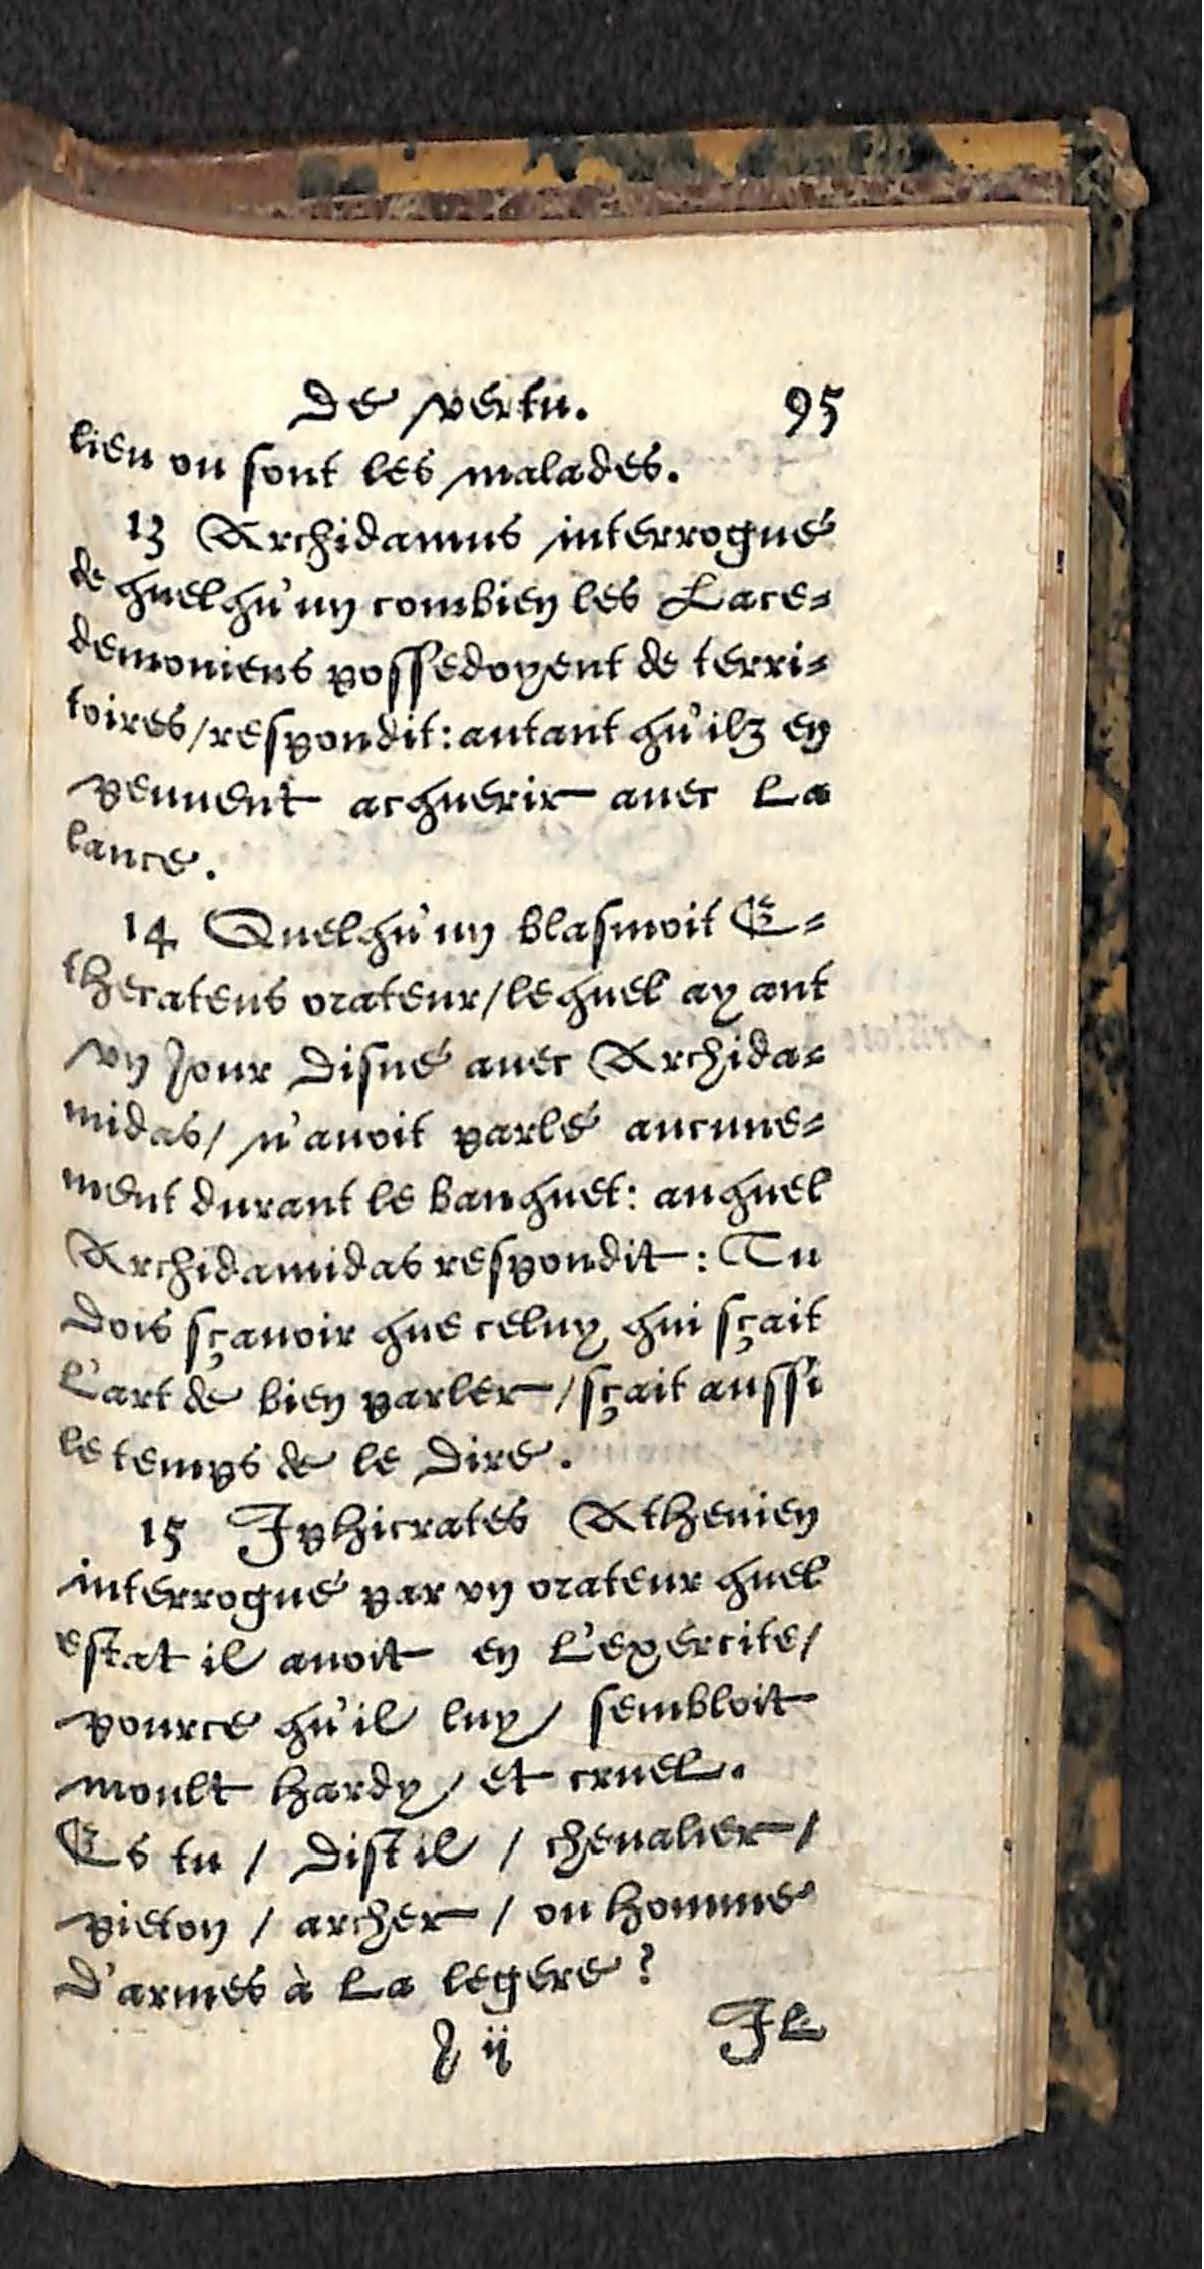 de vertu. 95
lieu ou sont les malades.
13 Archidamus interrogué
de quelqu'un combien les Lace-
demoniens possedoyent de terri-
toires/respondit: autant qu'ilz en
peuuent acquerir auec la
lance.
14 Quelqu'un blasmoit E-
thecateus orateur/lequel ayant
vn jour disné auec Archida-
midas/ n'auoit parlé aucune-
ment durant le banquet: auquel
Archidamidas respondit: Tu
dois sçauoir que celuy qui sçait
l'art de bien parler/sçait aussi
le temps de le dire.
15 Iphicrates Athenien
interrogué par vn orateur quel
estat il auoit en l'exercite/
pource qu'il luy sembloit
moult hardy/ et cruel.
Es tu / dist il / cheualier/
pieton / archer / ou homme
d'armes à la legere?
J ij Il